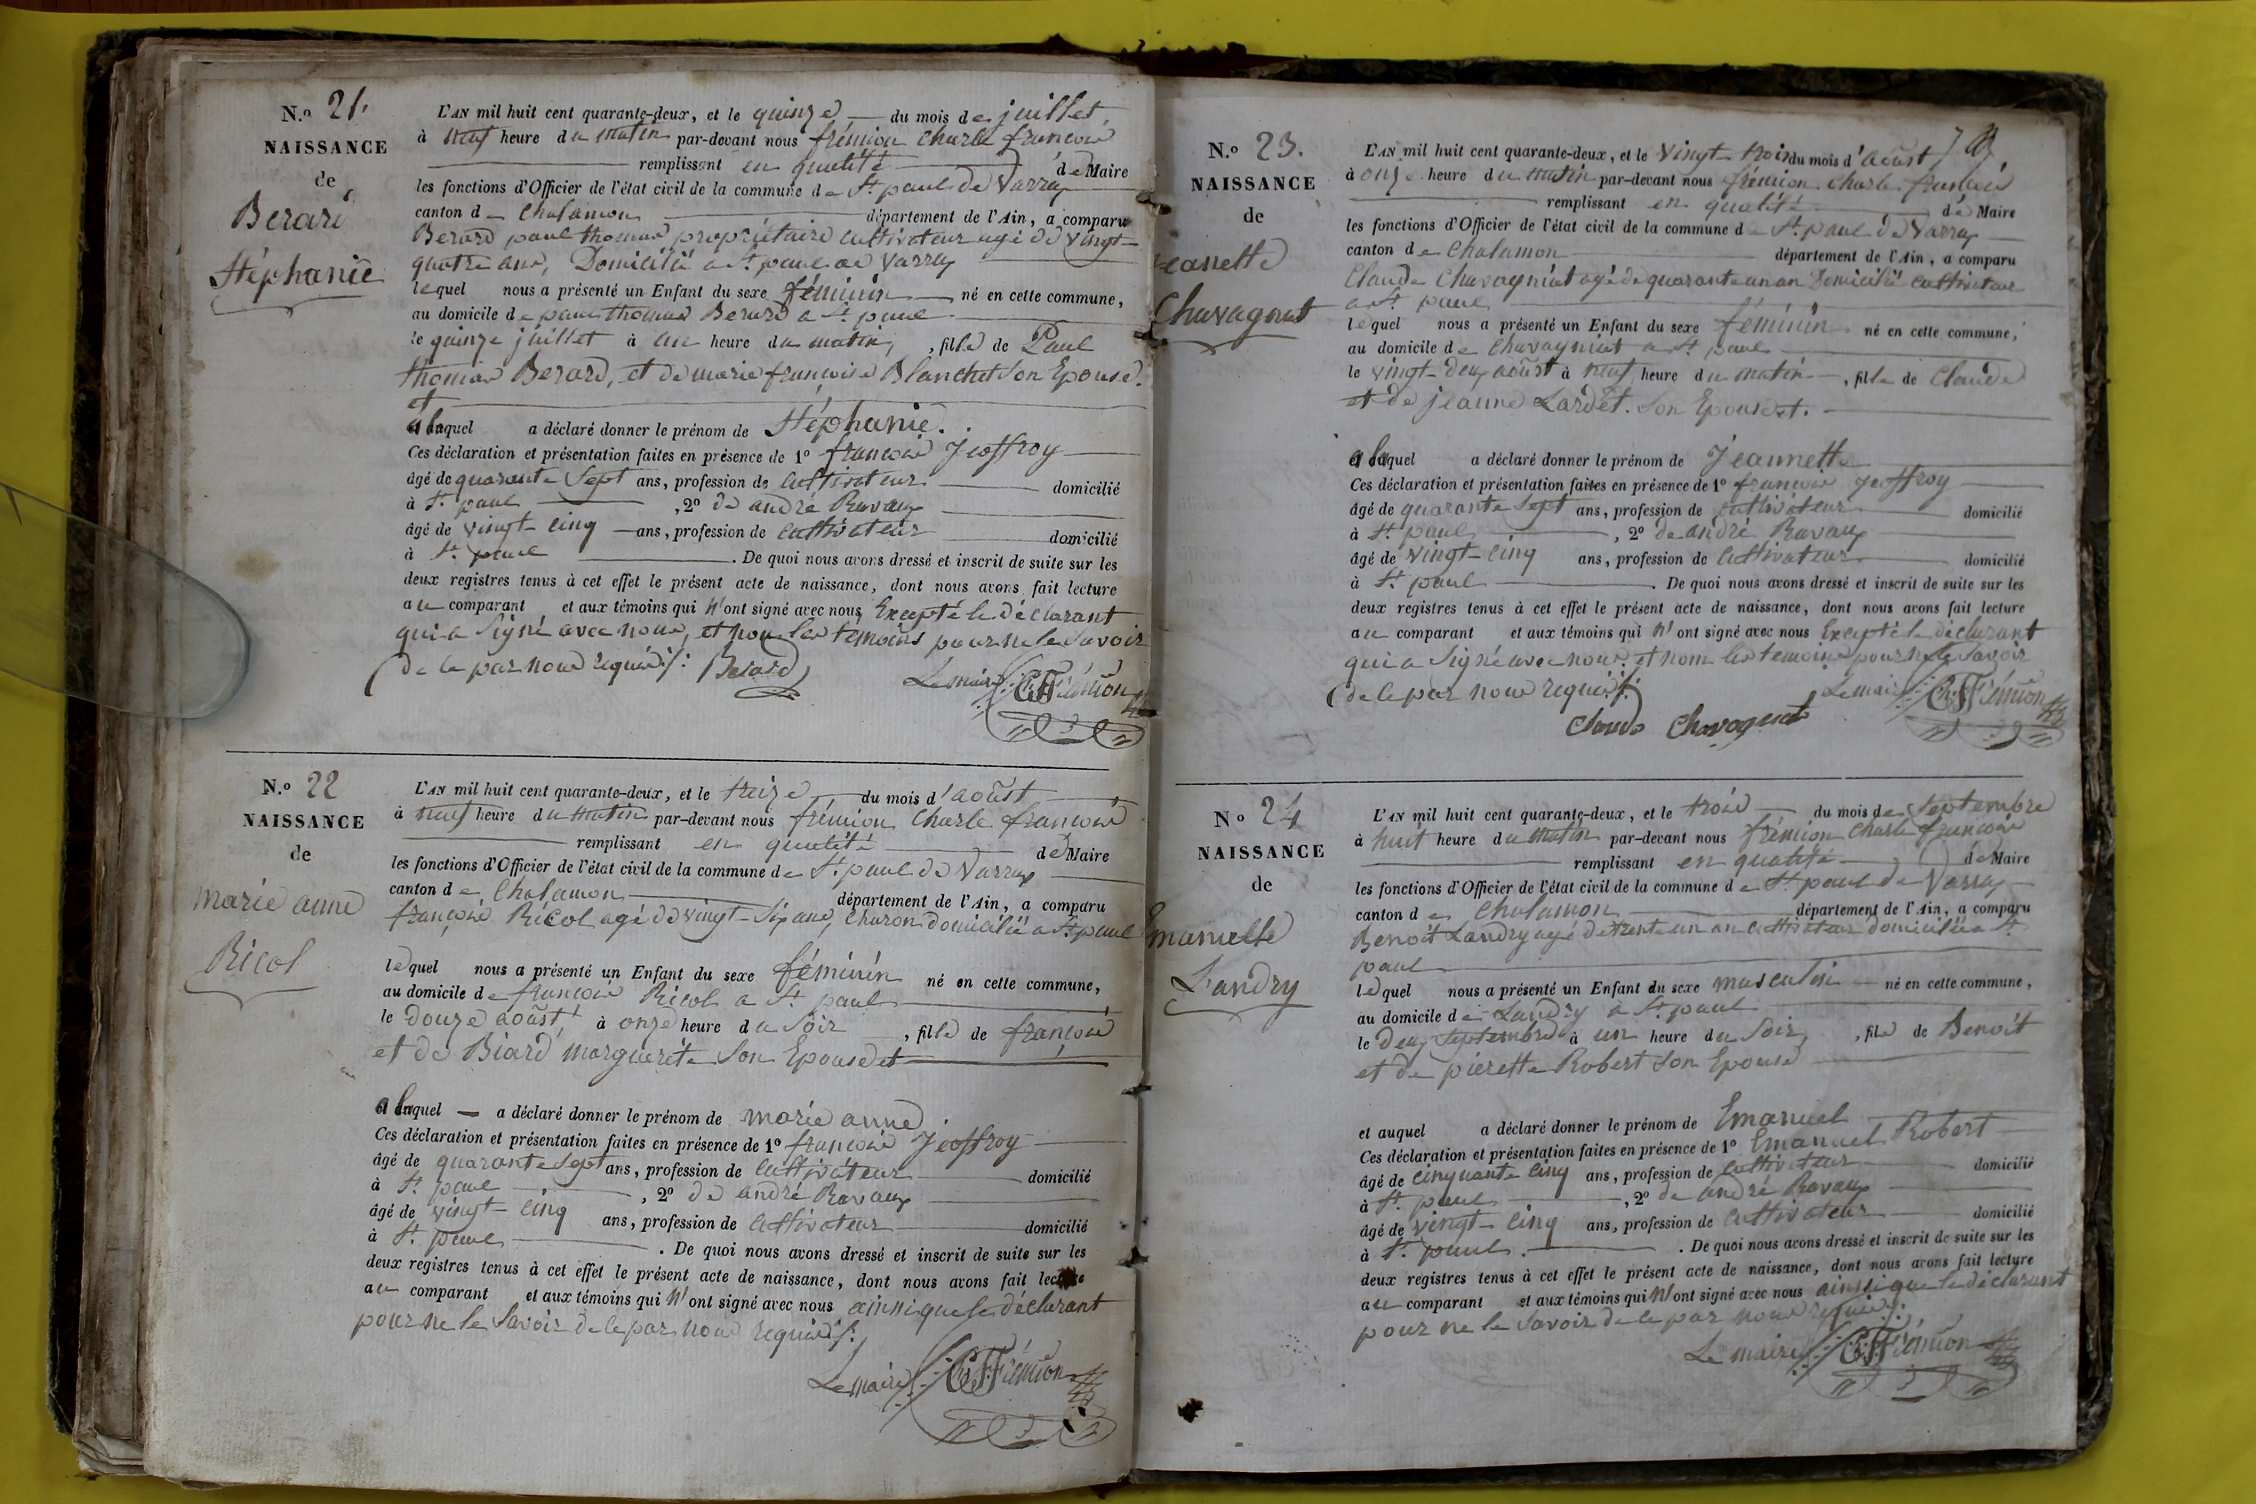 N.o 21.
NAISSANCE
de
Berard
Stéphanie
L'AN mil huit cent quarante-deux, et le quinze du mois de juillet,
à neuf heure du matin par-devant nous frémion Charle françois
remplissant en qualité de Maire
les fonctions d'Officier de l'état civil de la commune de St. paul de Varrax
canton de Chalamon département de l'Ain, a comparu
Berard paul thomas propriétaire cultivateur agé de vingt
quatre ans, Domicilié a St. paul de Varrax
lequel nous a présenté un Enfant du sexe féminin né en cette commune,
au domicile de paul thomas Berard a St. paul
le quinze juillet à un heure du matin, , fille de Paul
thomas Berard, et de marie françoise Blanchet Son Epouse.
et
a laquel a déclaré donner le prénom de Stéphanie.
Ces déclaration et présentation faites en présence de 1º françois Jeoffroy
âgé de quarante Sept ans, profession de cultivateur domicilié
à St. paul , 2º de andré Ravaux
âgé de vingt-cinq ans, profession de cultivateur domicilié
à St. paul . De quoi nous avons dressé et inscrit de suite sur les
deux registres tenus à cet effet le présent acte de naissance, dont nous avons fait lecture
au comparant et aux témoins qui n'ont signé avec nous Excepté le déclarant
qui a Signé avec nous, et non les temoins pour ne le Savoir
de ce par nous requis: Berard
Le maire Ch. F. Frémion
N.o 22
NAISSANCE
de
marie anne
Ricol
L'AN mil huit cent quarante-deux, et le treize du mois d'aoûst
à neuf heure du matin par-devant nous frémion Charle françois
remplissant en qualité de Maire
les fonctions d'Officier de l'état civil de la commune de St. paul de Varrax
canton de Chalamon département de l'Ain, a comparu
françois Ricol agé de vingt-Six ans, Charon domicilié a St. paul
lequel nous a présenté un Enfant du sexe féminin né en cette commune,
au domicile de françois Ricol a St. paul
le douze aoûst à onze heure du Soir , fille de françois
et de Biard marguerite Son Epouse et
a laquel a déclaré donner le prénom de marie anne
Ces déclaration et présentation faites en présence de 1º françois Jeoffroy
âgé de quarante Sept ans, profession de cultivateur domicilié
à St. paul , 2º de andré Ravaux
âgé de vingt-cinq ans, profession de cultivateur domicilié
à St. paul . De quoi nous avons dressé et inscrit de suite sur les
deux registres tenus à cet effet le présent acte de naissance, dont nous avons fait lecture
au comparant et aux témoins qui n'ont signé avec nous ainsi que le déclarant
pour ne le Savoir de ce par nous requis:
Le maire Ch. F. Frémion
N.o 23.
NAISSANCE
de
Jeanette
Chavagnat
L'AN mil huit cent quarante-deux, et le vingt-trois du mois d'aoûst
à onze heure du matin par-devant nous frémion Charle françois
remplissant en qualité de Maire
les fonctions d'Officier de l'état civil de la commune de St. paul de Varrax
canton de Chalamon département de l'Ain, a comparu
Claude Chavagniat agé de quarante un an Domicilié cultivateur
a St. paul
lequel nous a présenté un Enfant du sexe féminin né en cette commune,
au domicile de Chavagniat a St. paul
le vingt-deux aoûst à neuf heure du matin , fille de Claude
et de jeanne Lardet. Son Epouse et.
a laquel a déclaré donner le prénom de Jeannette
Ces déclaration et présentation faites en présence de 1º françois Jeoffroy
âgé de quarante Sept ans, profession de cultivateur domicilié
à St. paul , 2º de andré Ravaux
âgé de vingt-cinq ans, profession de cultivateur domicilié
à St. paul . De quoi nous avons dressé et inscrit de suite sur les
deux registres tenus à cet effet le présent acte de naissance, dont nous avons fait lecture
au comparant et aux témoins qui n'ont signé avec nous Excepté le déclarant
qui a Signé avec nous. et nom les temoins pour ne le Savoir
de ce par nous requis:
Le maire Ch. F. Frémion
Claude Chavagnat
N.o 24
NAISSANCE
de
Emanuelle
Landry
L'AN mil huit cent quarante-deux, et le trois du mois de Septembre
à huit heure du matin par-devant nous frémion Charle françois
remplissant en qualité de Maire
les fonctions d'Officier de l'état civil de la commune de St. paul de Varrax
canton de Chalamon département de l'Ain, a comparu
Benoit Landry agé de trente un an cultivateur domicilié a St.
paul
lequel nous a présenté un Enfant du sexe masculin né en cette commune,
au domicile de Landry a St. paul
le deux Septembre à un heure du Soir , fils de Benoit
et de pierette Robert Son Epouse
et auquel a déclaré donner le prénom de Emanuel
Ces déclaration et présentation faites en présence de 1º Emanuel Robert
âgé de cinquante cinq ans, profession de cultivateur domicilié
à St. paul , 2º de andré Ravaux
âgé de vingt-cinq ans, profession de cultivateur domicilié
à St. paul . De quoi nous avons dressé et inscrit de suite sur les
deux registres tenus à cet effet le présent acte de naissance, dont nous avons fait lecture
au comparant et aux témoins qui n'ont signé avec nous ainsi que le déclarant
pour ne le Savoir de ce par nous requis:
Le maire Ch. F. Frémion